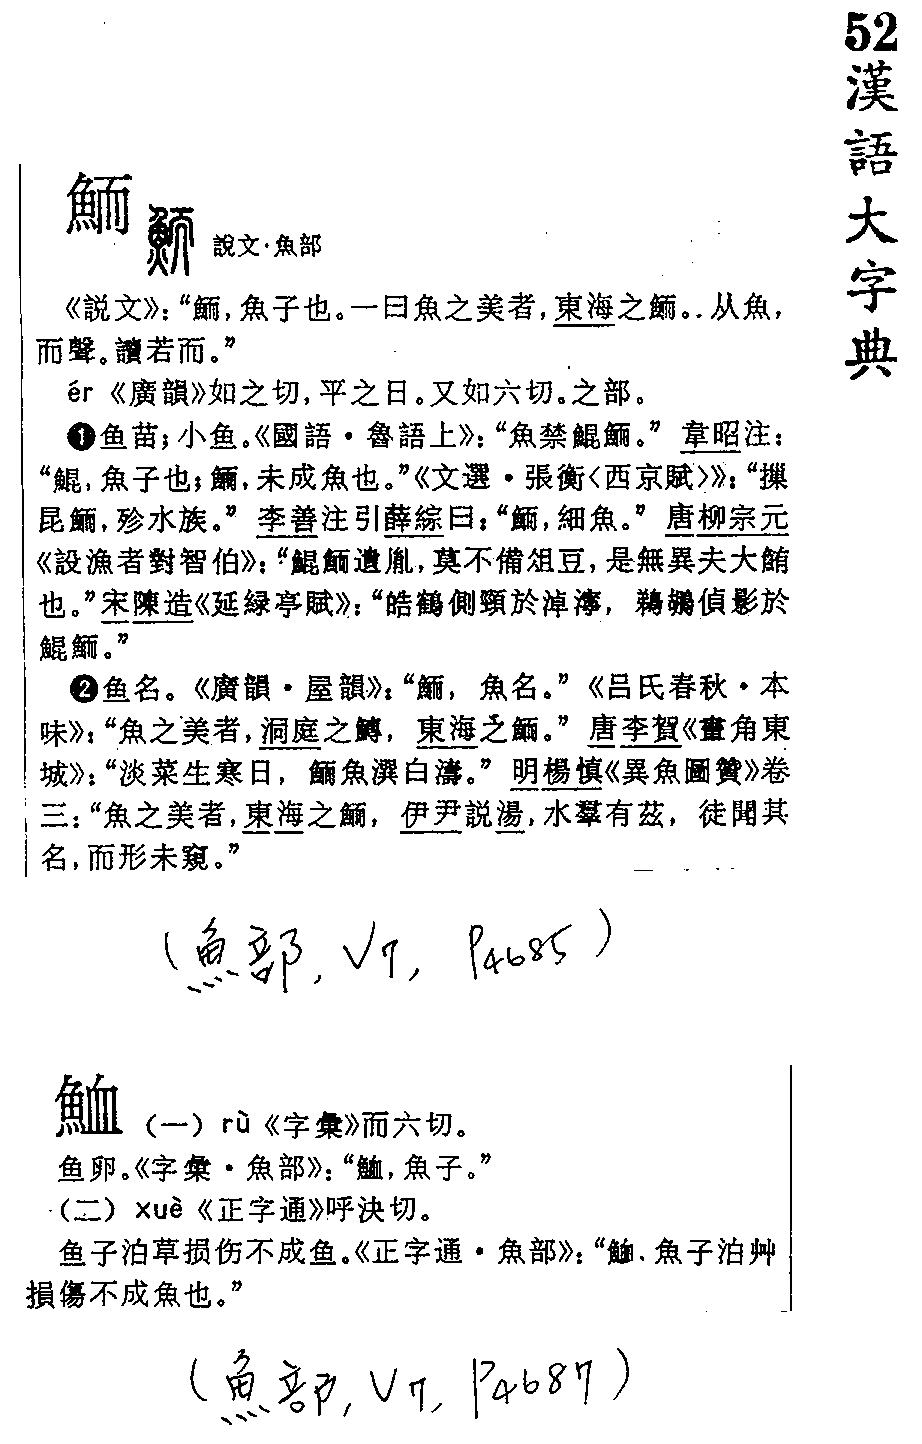 52漢語大字典
鮞
說文·魚部
《説文》：“鮞，魚子也。一曰魚之美者，東海之鮞。从魚，
而聲。讀若而。”
ér《廣韻》如之切，平之日。又如六切。之部。
❶鱼苗；小鱼。《國語·魯語上》：“魚禁鯤鮞。”韋昭注：
“鯤，魚子也；鮞，未成魚也。”《文選·張衡〈西京賦〉》：“摷
昆鮞，殄水族。”李善注引薛綜曰：“鮞，細魚。”唐柳宗元
《設漁者對智伯》：“鯤鮞遺胤，莫不備俎豆，是無異夫大鮪
也。”宋陳造《延緑亭賦》：“皓鶴側頸於淖濘，鵜鶘偵影於
鯤鮞。”
❷鱼名。《廣韻·屋韻》：“鮞，魚名。”《吕氏春秋·本
味》：“魚之美者，洞庭之鱄，東海之鮞。”唐李賀《畫角東
城》：“淡菜生寒日，鮞魚潠白濤。”明楊慎《異魚圖贊》卷
三：“魚之美者，東海之鮞，伊尹説湯，水羣有兹，徒聞其
名，而形未窺。”
（魚部，V7，P4685）
䱛（一）rù《字彙》而六切。
鱼卵。《字彙·魚部》：“䱛，魚子。”
（二）xuè《正字通》呼決切。
鱼子泊草损伤不成鱼。《正字通·魚部》：“䱛，魚子泊艸
損傷不成魚也。”
（魚部，V7，P4687）